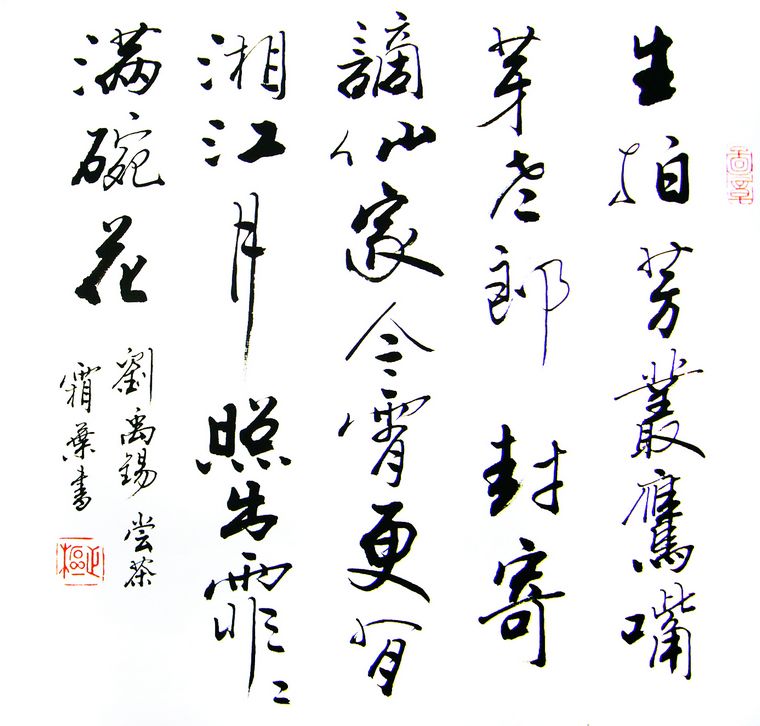 生拍芳叢鷹嘴
芽老郎封寄
謫仙家今霄更有
湘江月照出霏〻
满碗花
劉禹錫尝茶
霜葉書